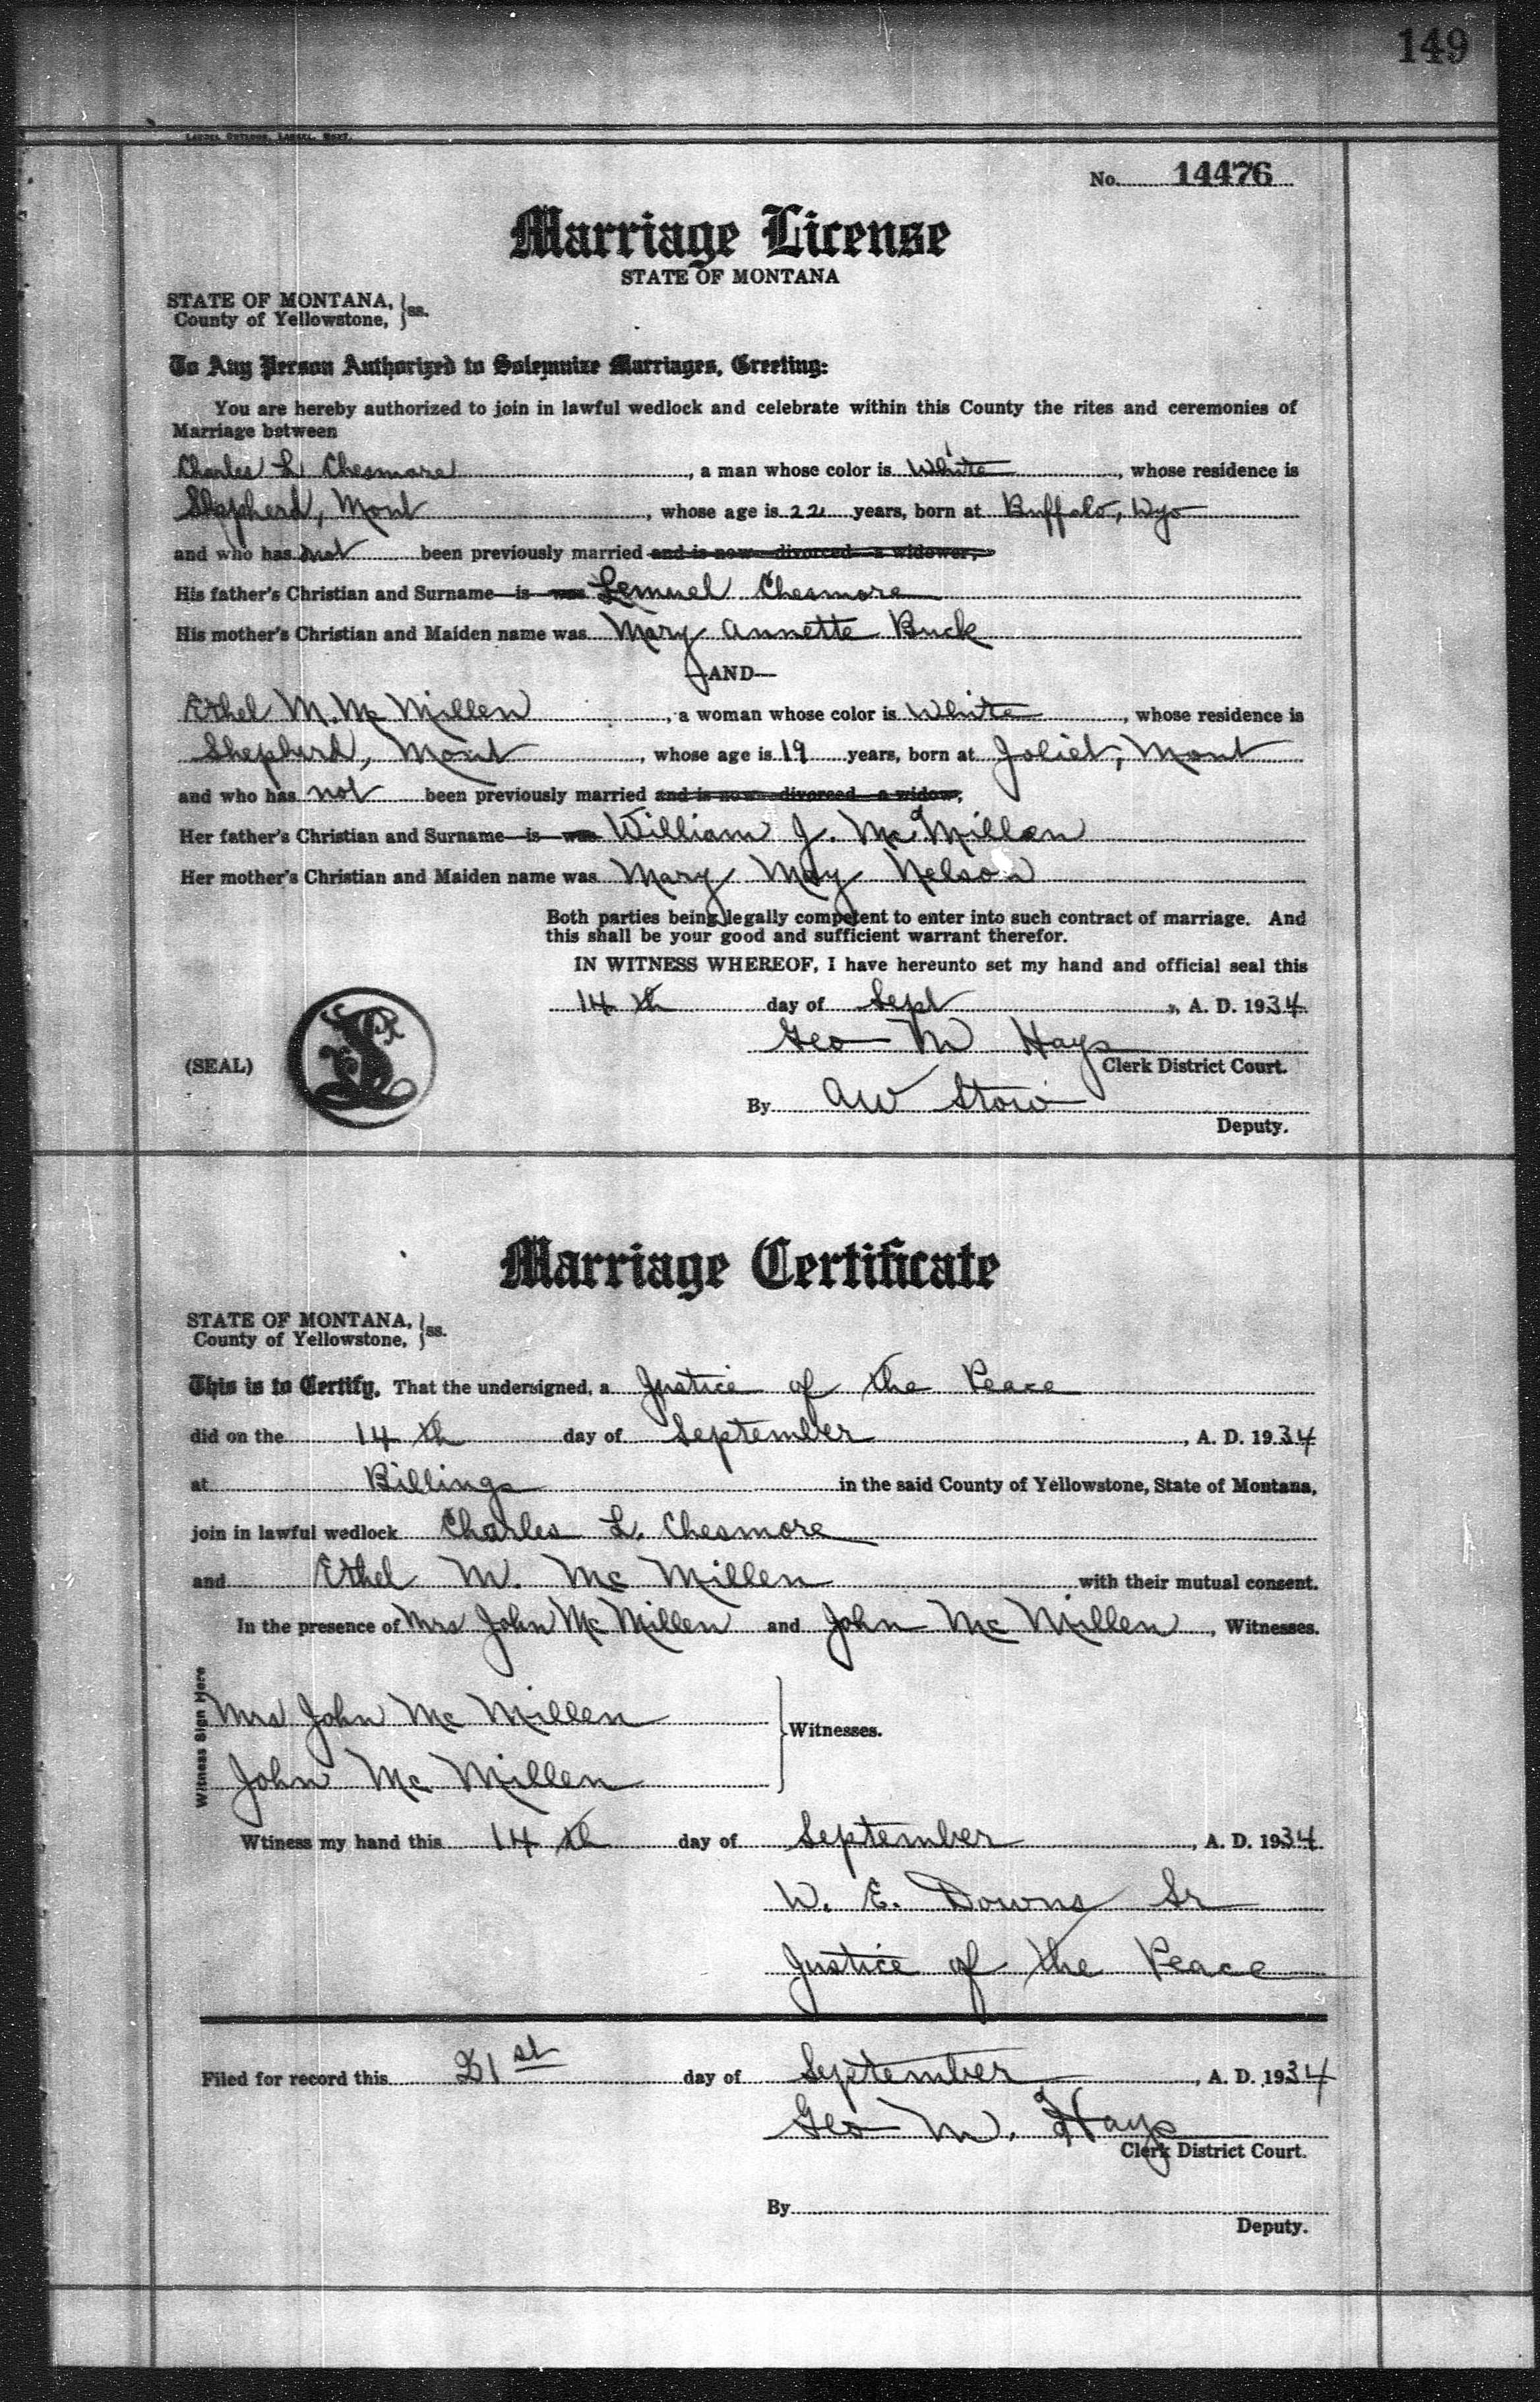 149
LAUREL OUTLOOK, LAUREL, MONT.
No. 14476
Marriage License
STATE OF MONTANA
STATE OF MONTANA, } ss.
County of Yellowstone,
To Any Person Authorized to Solemnize Marriages, Greeting:
You are hereby authorized to join in lawful wedlock and celebrate within this County the rites and ceremonies of
Marriage between
Charles L Chesmore, a man whose color is White, whose residence is
Shepherd, Mont, whose age is 22 years, born at Buffalo, Wyo
and who has not been previously married and is now divorced a widower,
His father's Christian and Surname is was Lemuel Chesmore
His mother's Christian and Maiden name was Mary Annette Buck
—AND—
Ethel M. Mc Millen, a woman whose color is White, whose residence is
Shepherd, Mont, whose age is 19 years, born at Joliet, Mont
and who has not been previously married and is now divorced a widow,
Her father's Christian and Surname is was William J. McMillen
Her mother's Christian and Maiden name was Mary May Nelson
Both parties being legally competent to enter into such contract of marriage. And
this shall be your good and sufficient warrant therefor.
IN WITNESS WHEREOF, I have hereunto set my hand and official seal this
14 th day of Sept, A. D. 1934
Geo M Hays
(SEAL) Clerk District Court.
By AW Stow
Deputy.
Marriage Certificate
STATE OF MONTANA, } ss.
County of Yellowstone,
This is to Certify, That the undersigned, a Justice of the Peace
did on the 14 th day of September, A. D. 1934
at Billings in the said County of Yellowstone, State of Montana,
join in lawful wedlock Charles L. Chesmore
and Ethel M. Mc Millen with their mutual consent.
In the presence of Mrs John Mc Millen and John Mc Millen, Witnesses.
Witness Sign Here
Mrs John Mc Millen
Witnesses.
John Mc Millen
Wtiness my hand this 14 th day of September, A. D. 1934
W. E. Downs Sr
Justice of the Peace
Filed for record this 21st day of September, A. D. 1934
Geo M. Hays
Clerk District Court.
By
Deputy.